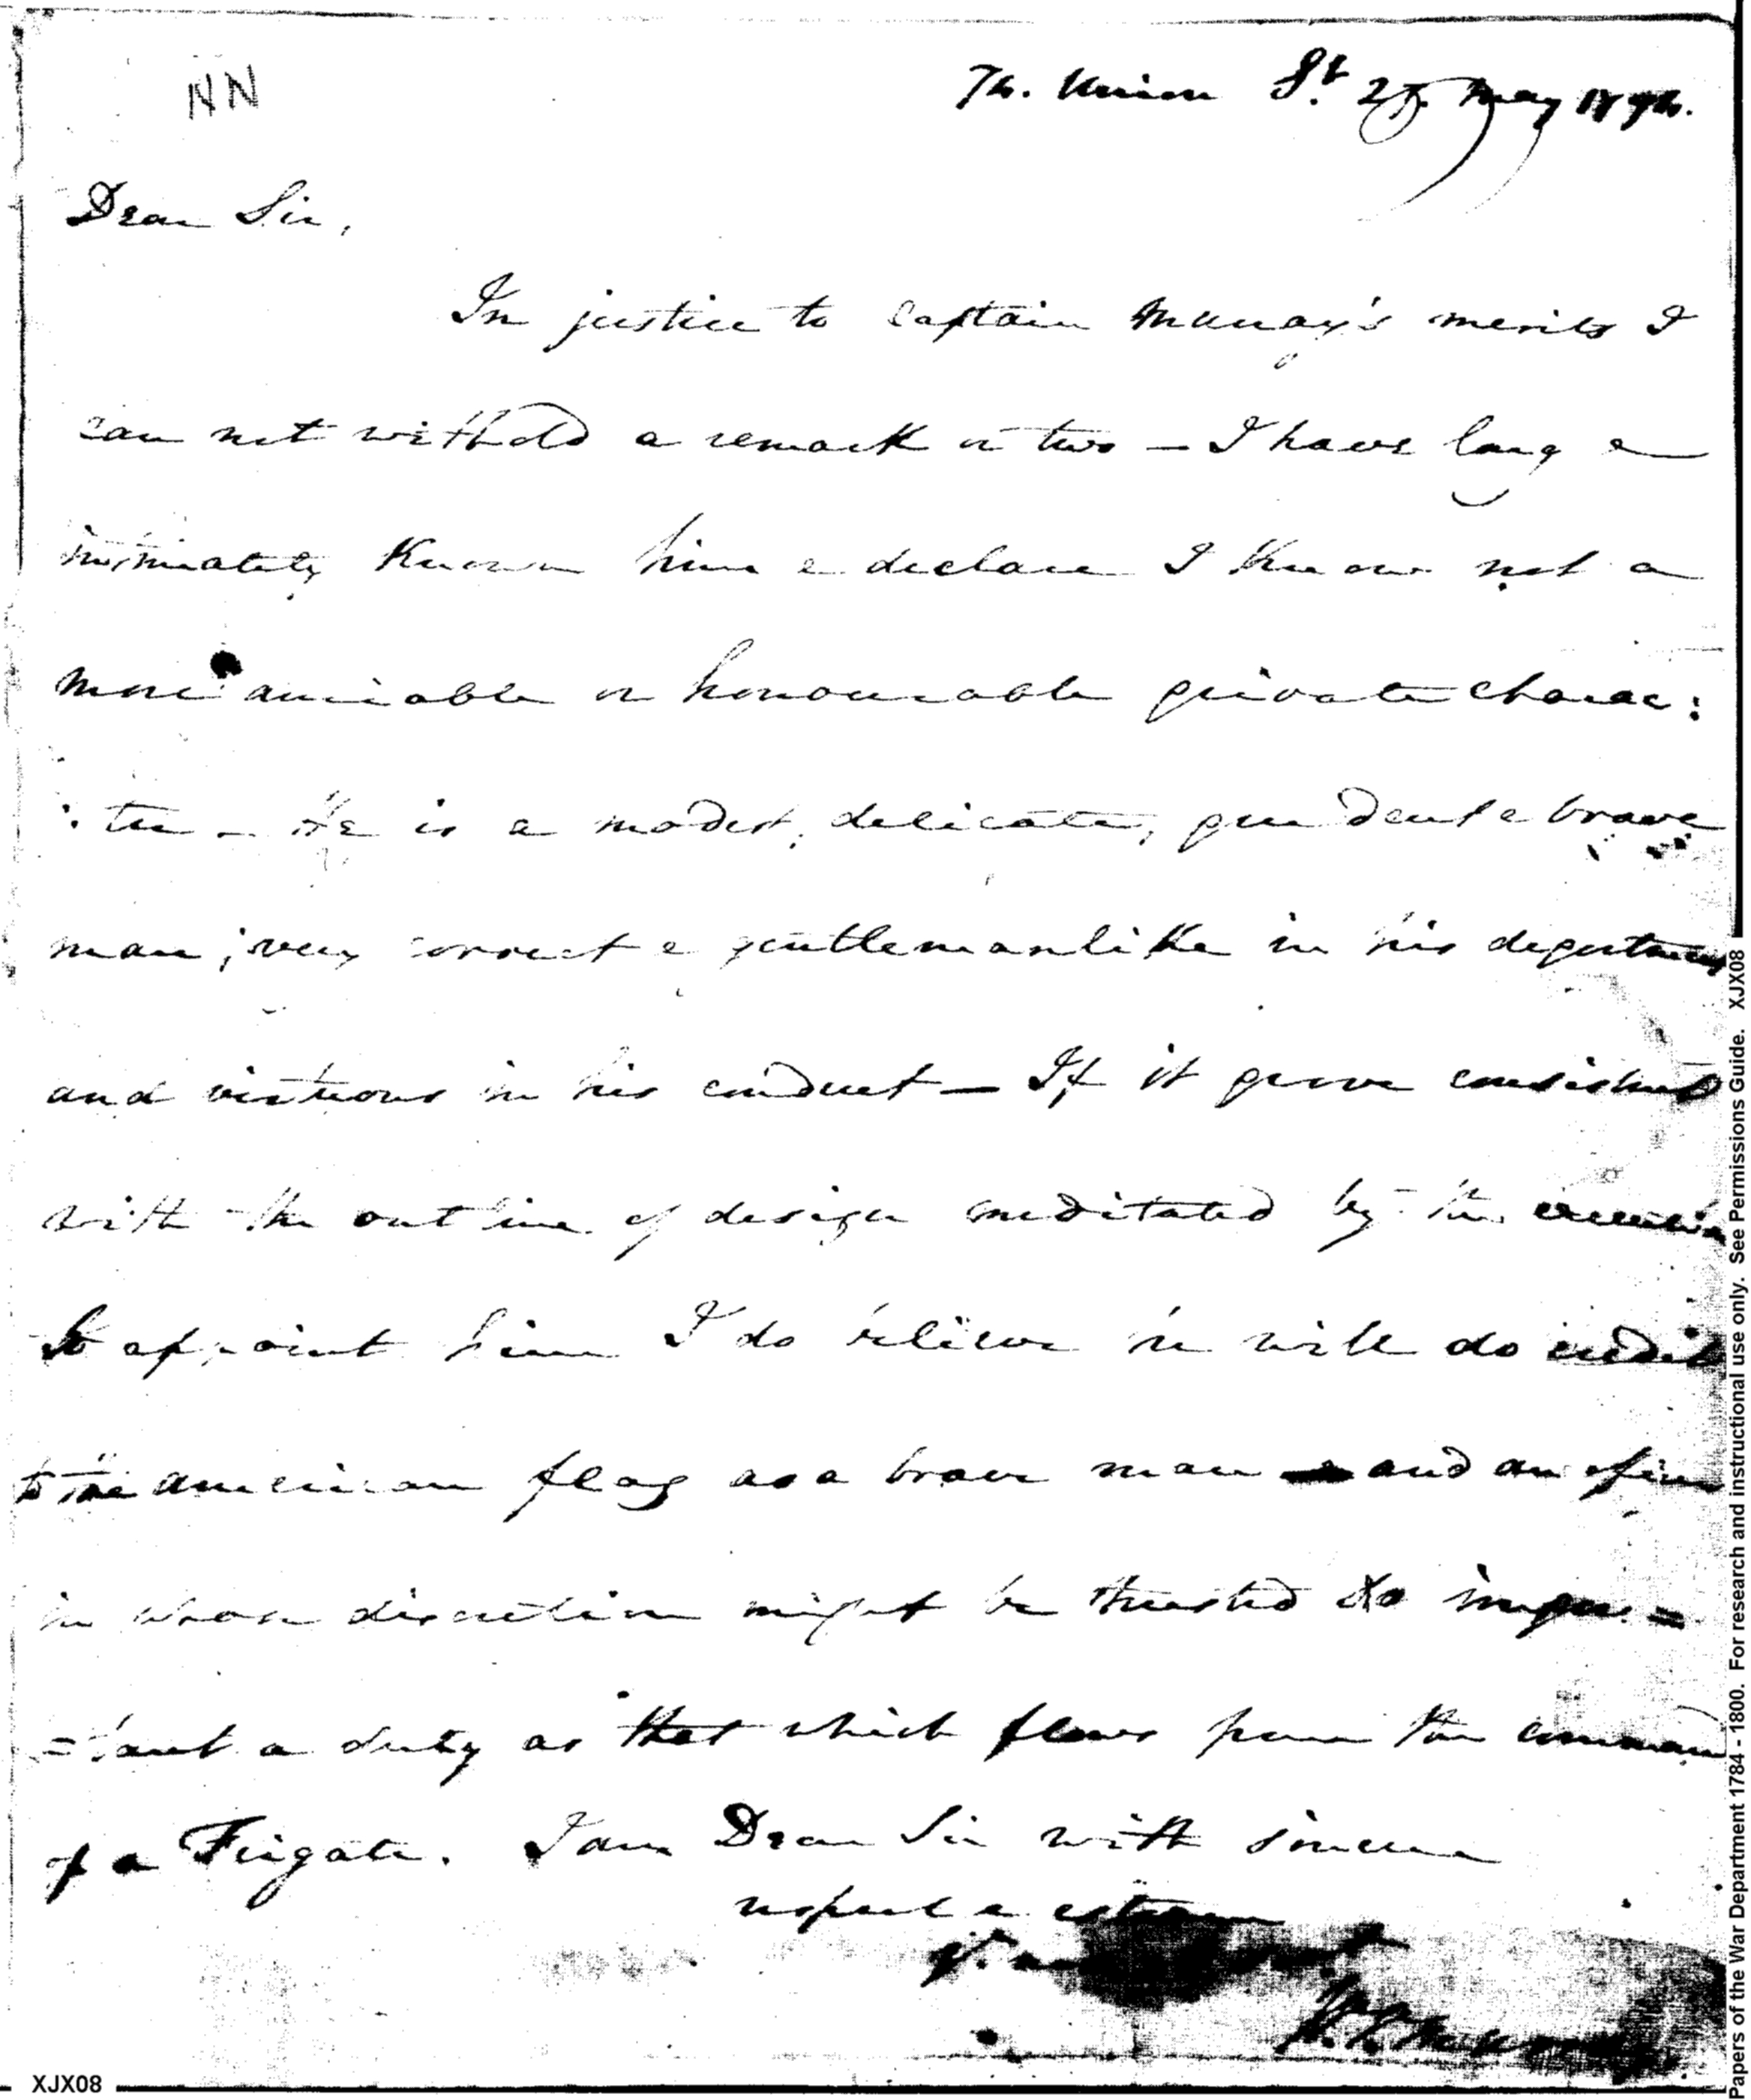 NN
76. Union St. 27. May 1794.
Dear Sir,
In justice to Captain Murray's merits I
can not withold a remark or two — I have long &
intimately known him & declare I know not a
more amiable or honourable private charac:
:ter – He is a modest, delicate, prudent & brave
man; very correct & gentlemanlike in his deportment
and virtuous in his conduct — If it prove consistent
with the outline of design meditated by the executive
to appoint him I do believe he will do credit
to the American flag as a brave man and an officer
in whose discretion might be trusted so impor=
=tant a duty as that which flows from the command
of a Frigate. I am Dear Sir with sincere
respect & esteem
XJX08
Papers of the War Department 1784 - 1800. For research and instructional use only. See Permissions Guide. XJX08